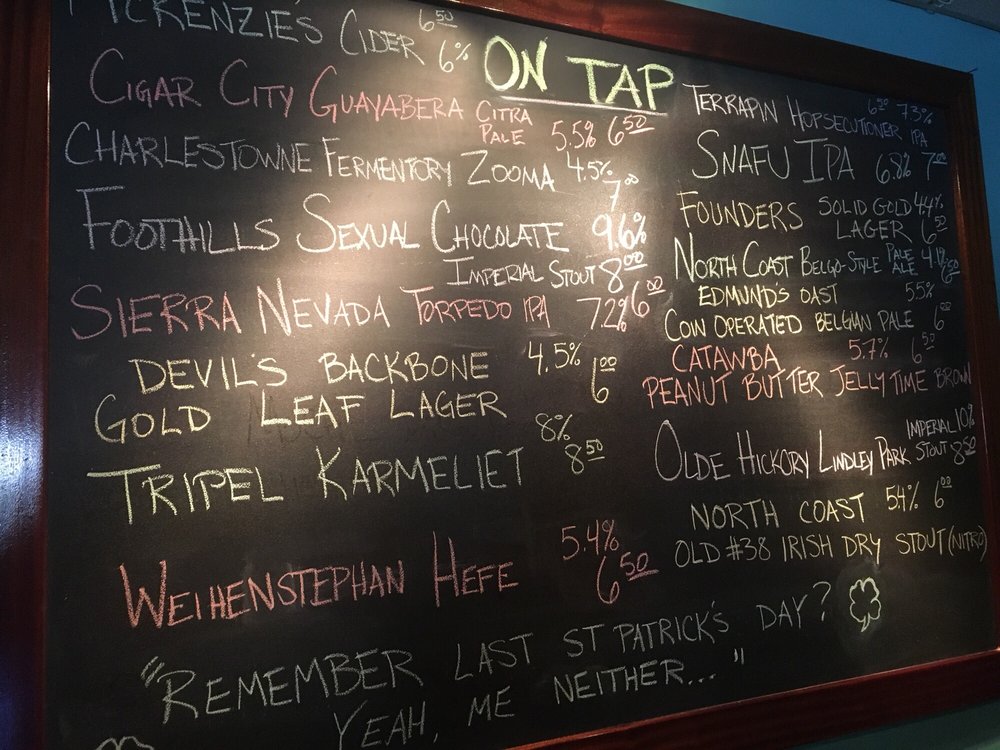 McKENZIE'S CIDER 6.50 6%
ON TAP
CIGAR CITY GUAYABERA CITRA
PALE 5.5% 6.50
CHARLESTOWNE FERMENTORY ZOOMA 4.5%
7.00
FOOTHILLS SEXUAL CHOCOLATE 9.6%
IMPERIAL STOUT 8.00
SIERRA NEVADA TORPEDO IPA 7.2% 6.00
DEVIL'S BACKBONE 4.5%
GOLD LEAF LAGER 6.00
TRIPEL KARMELIET 8%
8.50
WEIHENSTEPHAN HEFE 5.4%
6.50
TERRAPIN HOPSECUTIONER IPA 7.3%
SNAFU IPA 6.8% 7.00
FOUNDERS SOLID GOLD 4.4%
LAGER 6.50
NORTH COAST BELGO-STYLE PALE
ALE
EDMUND'S OAST 5.5%
COIN OPERATED BELGIAN PALE 6.00
CATAWBA 5.7% 6.50
PEANUT BUTTER JELLY TIME BROWN
IMPERIAL 10%
OLDE HICKORY LINDLEY PARK STOUT 8.50
NORTH COAST 5.4% 6.00
OLD #38 IRISH DRY STOUT (NITRO)
"REMEMBER LAST ST PATRICK'S DAY?
YEAH, ME NEITHER..."